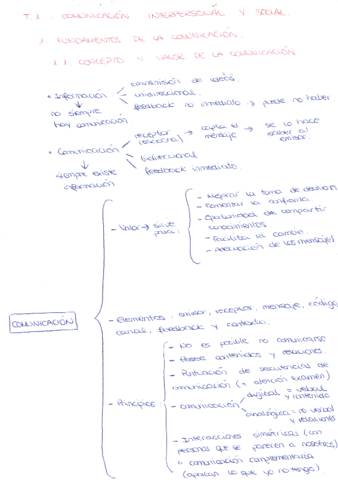 T.1. COMUNICACIÓN INTERPERSONAL Y SOCIAL.
1. FUNDAMENTOS DE LA COMUNICACIÓN.
1.1. CONCEPTO Y VALOR DE LA COMUNICACIÓN
• Información
transmisión de
unidireccional.
feedback no inmediato → puede no haber
no siempre
hay comunicación
• Comunicación
receptor
(escucha) → capta el
mensaje → se lo hace
saber al
emisor.
bidireccional
feedback inmediato.
siempre existe
información
COMUNICACIÓN
- Valor → sirve
para:
- Mejorar la toma de decisiones
- Fomentar la confianza.
- Oportunidad de compartir
conocimientos
- Facilita el cambio
- Adecuación de los mensajes
- Elementos: emisor, receptor, mensaje, código,
canal, feedback y contexto.
- Principios:
- No es posible no comunicarse
- Posee contenidos y relaciones.
- Puntuación de secuencias de
comunicación (= atención examen).
- comunicación
digital = verbal
y contenido
analógica = no verbal
y relaciones
- Interacciones simétricas (con
personas que se parecen a nosotros)
o comunicación complementaria
(aportan lo que yo no tengo).